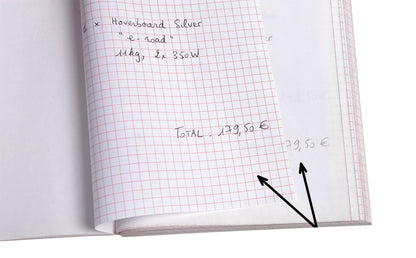 × Hoverboard Silver
"e-road"
11kg, 2x 350W
TOTAL : 179,50 €
-79,50 €